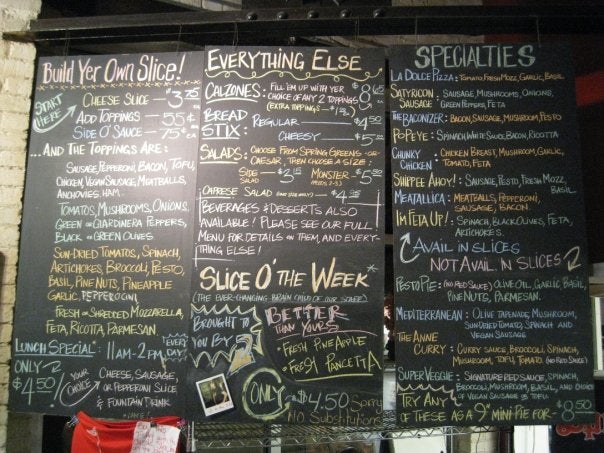 Build Yer Own Slice!
START HERE
CHEESE SLICE - $3.75
ADD TOPPINGS - 55¢
SIDE O' SAUCE - 75¢ EA.
...AND THE TOPPINGS ARE:
SAUSAGE, PEPPERONI, BACON, TOFU,
CHICKEN, VEGAN SAUSAGE, MEATBALLS,
ANCHOVIES, HAM...
TOMATOS, MUSHROOMS, ONIONS,
GREEN OR GIARDINERA PEPPERS,
BLACK OR GREEN OLIVES
SUN-DRIED TOMATOS, SPINACH,
ARTICHOKES, BROCCOLI, PESTO,
BASIL, PINE NUTS, PINEAPPLE
GARLIC, PEPPERONCINI
FRESH OR SHREDDED MOZZARELLA,
FETA, RICOTTA, PARMESAN.
LUNCH SPECIAL: 11AM-2PM EVERY DAY!
ONLY $4.50!
YOUR CHOICE
CHEESE, SAUSAGE,
OR PEPPERONI SLICE
& FOUNTAIN DRINK
EVERYTHING ELSE
CALZONES: FILL 'EM UP WITH YER
CHOICE OF ANY 2 TOPPINGS
(EXTRA TOPPINGS
$8.65
BREAD STIX:
REGULAR - $4.
CHEESY - $5.
SALADS: CHOOSE FROM SPRING GREENS OR
CAESAR, THEN CHOOSE A SIZE:
SIDE - $3.15
MONSTER - $5.50
CAPRESE SALAD
$4.35
BEVERAGES & DESSERTS ALSO
AVAILABLE! PLEASE SEE OUR FULL
MENU FOR DETAILS ON THEM, AND EVERY-
THING ELSE!
SLICE O' THE WEEK*
(THE EVER-CHANGING BRAIN CHILD OF OUR STAFF)
BROUGHT TO YOU BY
BETTER
THAN YOURS
- FRESH PINEAPPLE
- FRESH PANCETTA
ONLY $4.50
Sorry
NO Substitutions
SPECIALTIES
LA DOLCE PIZZA: TOMATO, FRESH MOZZ, GARLIC, BASIL
SATYRICON SAUSAGE: SAUSAGE, MUSHROOMS, ONIONS,
GREEN PEPPERS, FETA
THE BACONIZER: BACON, SAUSAGE, MUSHROOM, PESTO
POPEYE: SPINACH, WHITE SAUCE, BACON, RICOTTA
CHUNKY CHICKEN: CHICKEN BREAST, MUSHROOM, GARLIC,
TOMATO, FETA
SHIPPEE AHOY!: SAUSAGE, PESTO, FRESH MOZZ,
BASIL
MEATALLICA: MEATBALLS, PEPPERONI,
SAUSAGE, BACON
I'M FETA UP!: SPINACH, BLACK OLIVES, FETA,
ARTICHOKES.
AVAIL IN SLICES
NOT AVAIL. IN SLICES
PESTO PIE: (NO RED SAUCE) OLIVE OIL, GARLIC, BASIL,
PINE NUTS, PARMESAN.
MEDITERRANEAN: OLIVE TAPENADE, MUSHROOM,
SUN-DRIED TOMATO, SPINACH AND
VEGAN SAUSAGE
THE ANNE CURRY: CURRY SAUCE, BROCCOLI, SPINACH,
MUSHROOM, TOFU, TOMATO (NO RED SAUCE)
SUPER VEGGIE: SIGNATURE RED SAUCE, SPINACH,
BROCCOLI, MUSHROOM, BASIL, AND CHOICE
OF VEGAN SAUSAGE OR TOFU
TRY ANY
OF THESE AS A 9" MINI-PIE FOR - $8.50